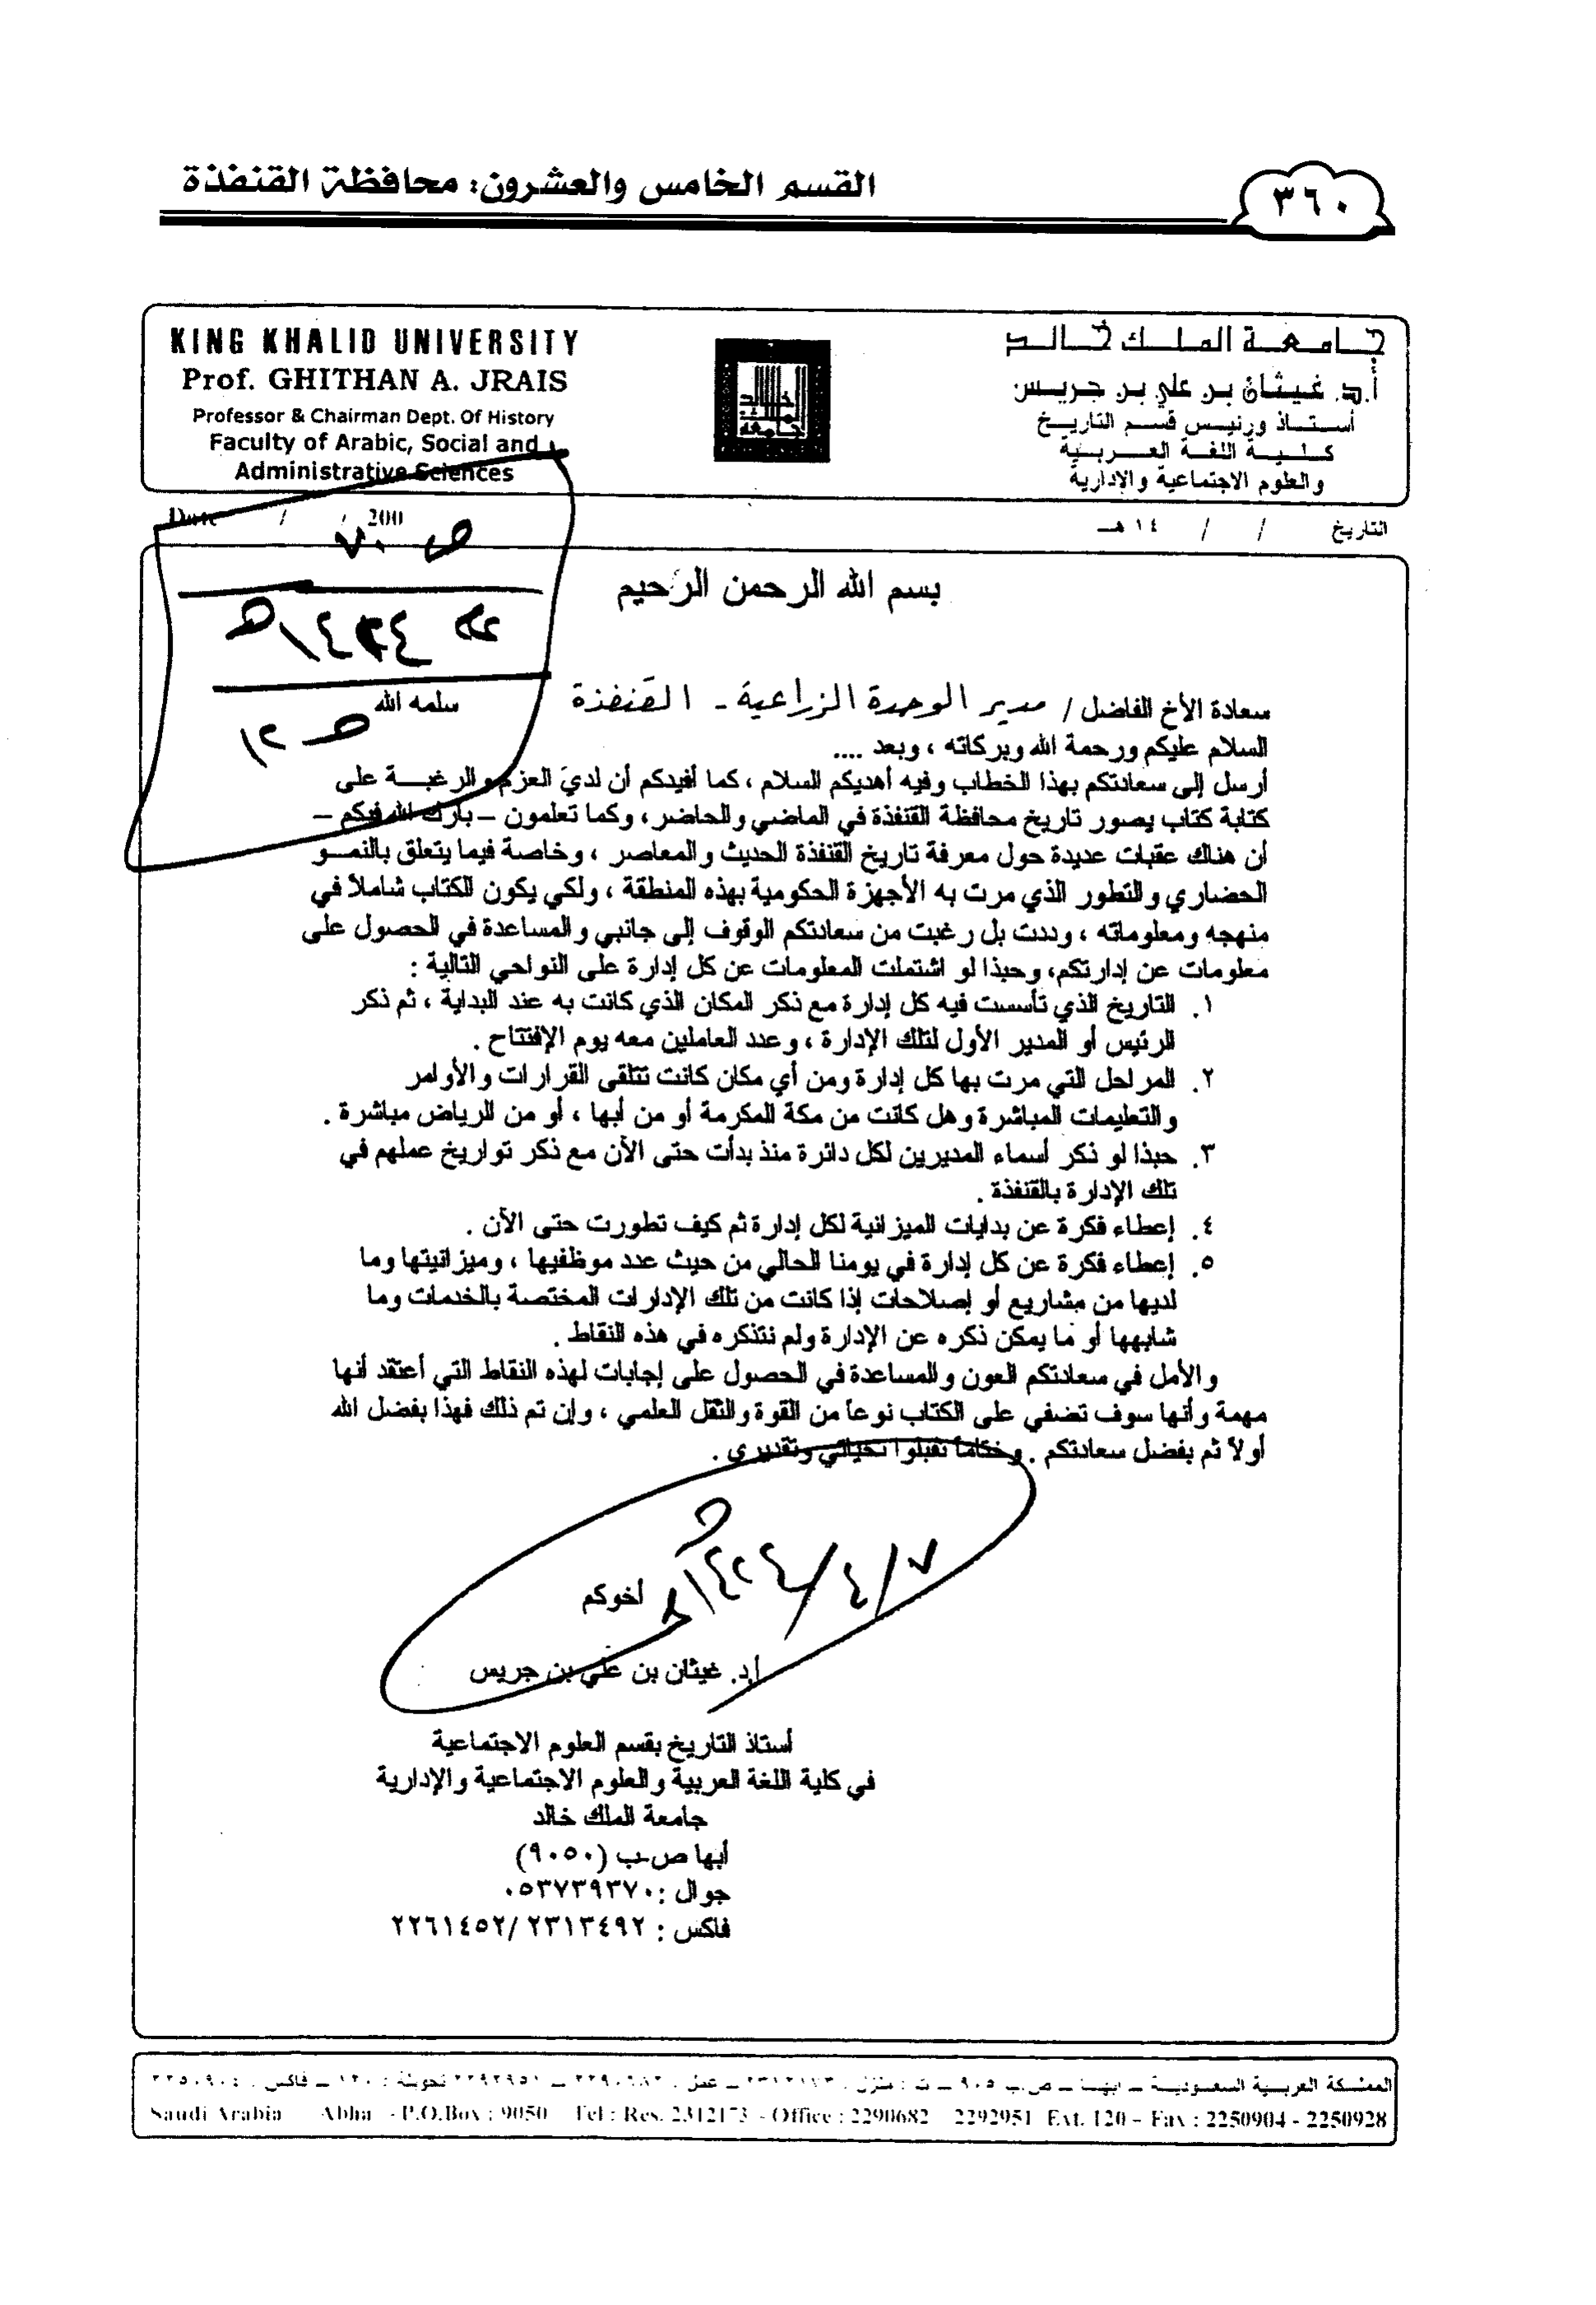 القسم الخامس والعشرون: محافظة القنفذة
٣٦٠
KING KHALID UNIVERSITY
Prof. GHITHAN A. JRAIS
Professor & Chairman Dept. Of History
Faculty of Arabic, Social and
Administrative Sciences
جامعة الملك خالد
أ.د. غيثان بن علي بن جريس
أستاذ ورئيس قسم التاريخ
كلية اللغة العربية
والعلوم الاجتماعية والإدارية
Date / / 200
التاريخ / / ١٤هـ
ص ٧٠
ص ١٢
بسم الله الرحمن الرحيم
سعادة الأخ الفاضل / مدير الوحدة الزراعية - القنفذة سلمه الله
السلام عليكم ورحمة الله وبركاته ، وبعد ....
أرسل إلى سعادتكم بهذا الخطاب وفيه أهديكم السلام ، كما أفيدكم أن لديَ العزم والرغبة على
كتابة كتاب يصور تاريخ محافظة القنفذة في الماضي والحاضر، وكما تعلمون – بارك الله فيكم –
أن هناك عقبات عديدة حول معرفة تاريخ القنفذة الحديث والمعاصر ، وخاصة فيما يتعلق بالنمو
الحضاري والتطور الذي مرت به الأجهزة الحكومية بهذه المنطقة ، ولكي يكون الكتاب شاملاً في
منهجه ومعلوماته ، وددت بل رغبت من سعادتكم الوقوف إلى جانبي والمساعدة في الحصول على
معلومات عن إدارتكم، وحبذا لو اشتملت المعلومات عن كل إدارة على النواحي التالية :
١. التاريخ الذي تأسست فيه كل إدارة مع ذكر المكان الذي كانت به عند البداية ، ثم ذكر
الرئيس أو المدير الأول لتلك الإدارة ، وعدد العاملين معه يوم الإفتتاح .
٢. المراحل التي مرت بها كل إدارة ومن أي مكان كانت تتلقى القرارات والأوامر
والتعليمات المباشرة وهل كانت من مكة المكرمة أو من أبها ، أو من الرياض مباشرة .
٣. حبذا لو ذكر أسماء المديرين لكل دائرة منذ بدأت حتى الآن مع ذكر تواريخ عملهم في
تلك الإدارة بالقنفذة .
٤. إعطاء فكرة عن بدايات الميزانية لكل إدارة ثم كيف تطورت حتى الآن .
٥. إعطاء فكرة عن كل إدارة في يومنا الحالي من حيث عدد موظفيها ، وميزانيتها وما
لديها من مشاريع أو إصلاحات إذا كانت من تلك الإدارات المختصة بالخدمات وما
شابهها أو ما يمكن ذكره عن الإدارة ولم نتذكره في هذه النقاط .
والأمل في سعادتكم العون والمساعدة في الحصول على إجابات لهذه النقاط التي أعتقد أنها
مهمة وأنها سوف تضفي على الكتاب نوعاً من القوة والثقل العلمي ، وإن تم ذلك فهذا بفضل الله
أولاً ثم بفضل سعادتكم . وختاماً تقبلوا تحياتي وتقديري .
٧/٤/١٤٢٤هـ
أخوكم
أ.د. غيثان بن علي بن جريس
أستاذ التاريخ بقسم العلوم الاجتماعية
في كلية اللغة العربية والعلوم الاجتماعية والإدارية
جامعة الملك خالد
أبها ص.ب (٩٠٥٠)
جوال : ٠٥٣٧٣٩٣٧٠
فاكس : ٢٣١٣٤٩٢ /٢٢٦١٤٥٢
المملكة العربية السعودية – ابها – ص.ب ٩٠٥ – ت : منزل : ٢٣١٢١٧٣ – عمل : ٢٢٩٠٦٨٢ – ٢٢٩٢٩٥١ تحويلة : ١٢٠ – فاكس : ٢٢٥٠٩٠٤
Saudi Arabia Abha - P.O.Box : 9050 Tel : Res. 2312173 - Office : 2290682 2292951 Ext. 120 – Fax : 2250904 - 2250928